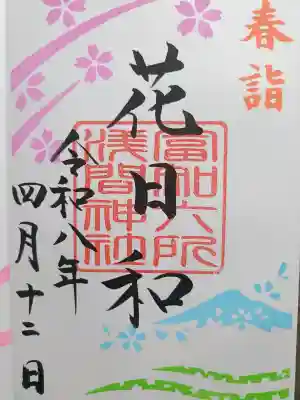 春詣
花日和
冨知六所
浅間神社
令和八年
四月十二日